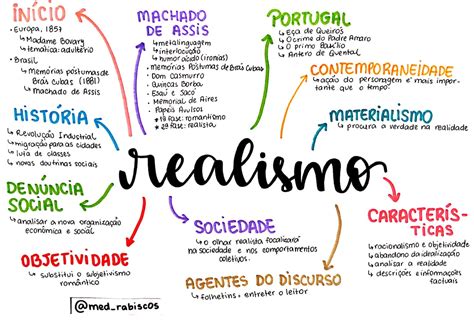 INÍCIO
Europa, 1857
Madame Bovary
temática: adultério
Brasil
memórias póstumas de
Brás Cubas (1881)
machado de Assis
HISTÓRIA
Revolução Industrial
migração para as cidades
luta de classes
novas doutrinas sociais
DENÚNCIA
SOCIAL
analisar a nova organização
econômica e social
OBJETIVIDADE
substitui o subjetivismo
romântico
@med_rabiscos
MACHADO
DE ASSIS
metalinguagem
interlocução
humor ácido (ironias)
Memórias Póstumas de Brás Cubas
Dom Casmurro
Quincas Borba
Esaú e Jacó
Memorial de Aires
Papéis Avulsos
*1ª fase: romantismo
*2ª fase: realista
realismo
SOCIEDADE
o olhar realista focalizará
na sociedade e nos comportamentos
coletivos.
AGENTES DO DISCURSO
folhetins, entreter o leitor
PORTUGAL
Eça de Queiros
O Crime do Padre Amaro
O primo Basílio
Antero de Quental
CONTEMPORANEIDADE
ação do personagem é mais impor-
tante que o tempo.
MATERIALISMO
procura a verdade na realidade
CARACTERÍS-
TICAS
racionalismo e objetividade
abandono da idealização
analisar a realidade
descrições e informações
factuais